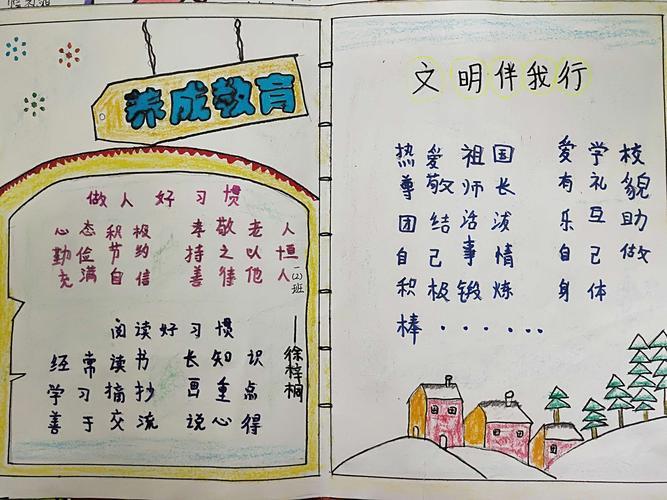 养成教育
做人好习惯
心态积极 孝敬老人
勤俭节约 持之以恒
充满自信 善待他人
阅读好习惯
经常读书 长知识
学习摘抄 画重点
善于交流 说心得
一(2)班
——徐梓桐
文明伴我行
热爱祖国 爱学校
尊敬师长 有礼貌
团结活泼 乐互助
自己事情 自己做
积极锻炼 身体
棒......